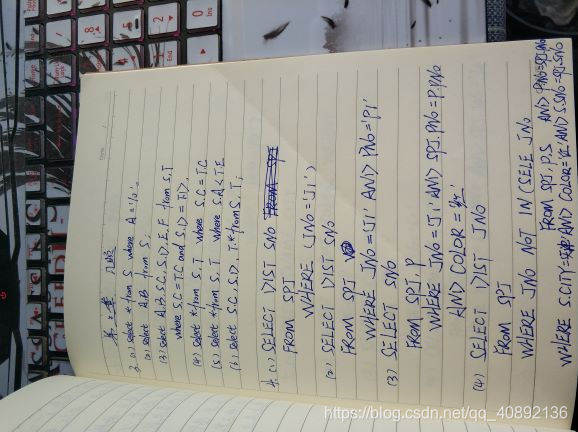 第三章 习题
2. (1) select * from S where A='10';
(2) select A,B from S;
(3) select A,B,S.C,S.D,E,F from S,T
where S.C=T.C and S.D=T.D;
(4) select * from S,T where S.C=T.C
(5) select * from S,T where S.A<T.E
(6) select S.C,S.D,T.* from S,T;
4. (1) SELECT DIST SNO
FROM SPJ
WHERE (JNO='J1')
(2) SELECT DIST SNO
FROM SPJ
WHERE JNO='J1' AND PNO='P1'
(3) SELECT SNO
FROM SPJ,P
WHERE JNO='J1' AND SPJ.PNO=P.PNO
AND COLOR='红'
(4) SELECT DIST JNO
FROM SPJ
WHERE JNO NOT IN (SELE JNO
FROM SPJ,P,S
WHERE S.CITY= AND COLOR='红' AND S.SNO=SPJ.SNO
AND P.NO=SPJ.PNO
https://blog.csdn.net/qq_40892136